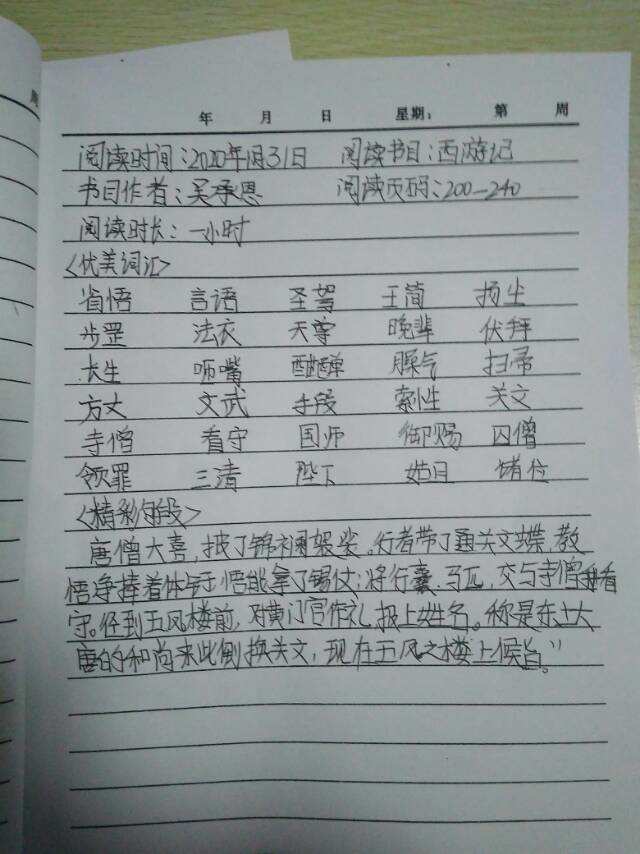 年 月 日 星期: 第 周
阅读时间:2020年1月31日 阅读书目:西游记
书目作者:吴承恩 阅读页码:200—240
阅读时长:一小时
〈优美词汇〉
省悟 言语 圣驾 王简 扬尘
步罡 法衣 天尊 晚辈 伏拜
长生 咂嘴 酣醉 臊气 扫帚
方丈 文武 手段 索性 关文
寺僧 看守 国师 御赐 囚僧
领罪 三清 陛下 始日 堵位
〈精彩句段〉
唐僧大喜,披了锦襕袈裟。行者带了通关文牒,教
悟净捧着钵盂,悟能拿了锡杖;将行囊、马匹,交与寺僧看
守。径到五凤楼前,对黄门官作礼,报上姓名。称是东土大
唐的和尚来此倒换关文,现在五凤之楼上候旨。”